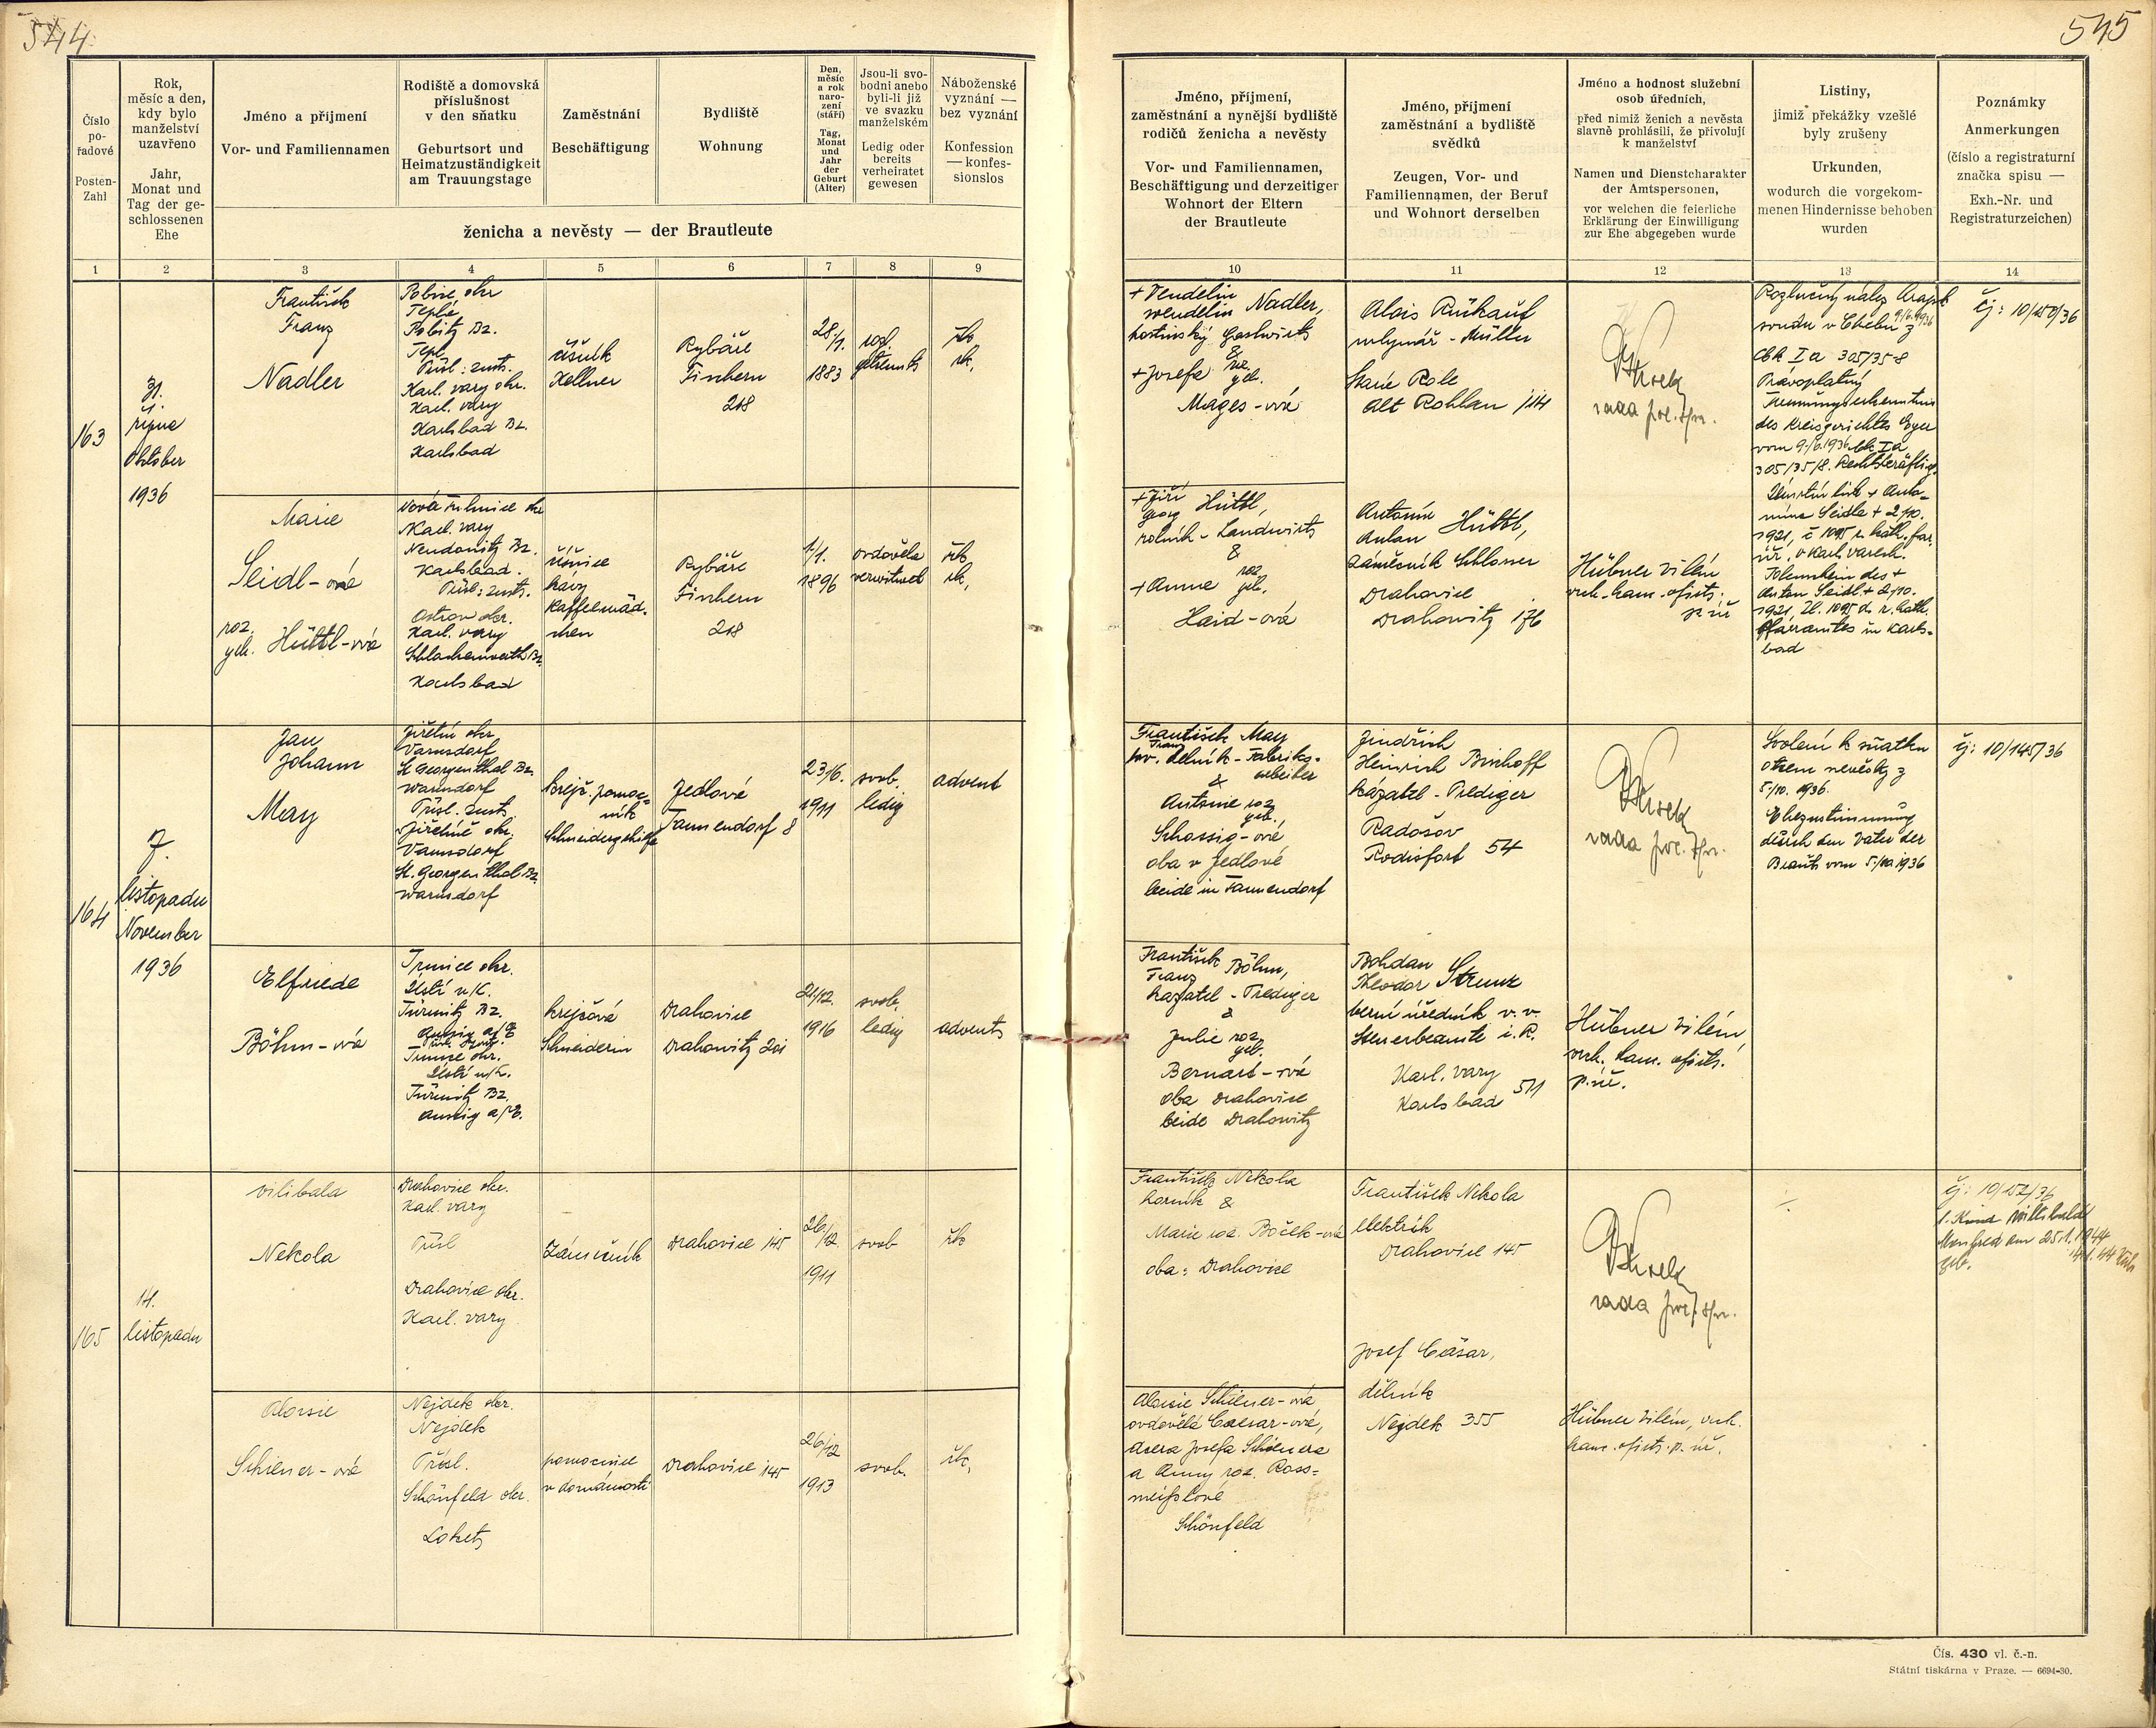 544
545
Číslo
po-
řadové
Posten-
Zahl
Rok,
měsíc a den,
kdy bylo
manželství
uzavřeno
Jahr,
Monat und
Tag der ge-
schlossenen
Ehe
Jméno a příjmení
Vor- und Familiennamen
Rodiště a domovská
příslušnost
v den sňatku
Geburtsort und
Heimatzuständigkeit
am Trauungstage
Zaměstnání
Beschäftigung
Bydliště
Wohnung
Den,
měsíc
a rok
naro-
zení
(stáří)
Tag,
Monat
und
Jahr
der
Geburt
(Alter)
Jsou-li svo-
bodni anebo
byli-li již
ve svazku
manželském
Ledig oder
bereits
verheiratet
gewesen
Náboženské
vyznání —
bez vyznání
Konfession
— konfes-
sionslos
ženicha a nevěsty — der Brautleute
Jméno, příjmení,
zaměstnání a nynější bydliště
rodičů ženicha a nevěsty
Vor- und Familiennamen,
Beschäftigung und derzeitiger
Wohnort der Eltern
der Brautleute
Jméno, příjmení
zaměstnání a bydliště
svědků
Zeugen, Vor- und
Familiennamen, der Beruf
und Wohnort derselben
Jméno a hodnost služební
osob úředních,
před nimiž ženich a nevěsta
slavně prohlásili, že přivolují
k manželství
Namen und Dienstcharakter
der Amtspersonen,
vor welchen die feierliche
Erklärung der Einwilligung
zur Ehe abgegeben wurde
Listiny,
jimiž překážky vzešlé
byly zrušeny
Urkunden,
wodurch die vorgekom-
menen Hindernisse behoben
wurden
Poznámky
Anmerkungen
(číslo a registraturní
značka spisu —
Exh.-Nr. und
Registraturzeichen)
1 2 3 4 5 6 7 8 9 10 11 12 13 14
163
31.
října
Oktober
1936
František
Franz
Nadler
Teplá
Tepl
Přísl: zust.
Karl. vary okr.
Karl. vary
Karlsbad Bz.
Karlsbad
číšník
Kellner
Rybáře
Fischern
218
28/1.
1883
rozl.
getrennt
řk
rk,
+ Vendelin
Wendelin Nadler,
hostinský Gastwirt
&
+ Josefa roz.
geb.
Mages-ová
Alois Rückauf
mlynář - Müller
Staré Role
Alt Rohlau 114
rada pol. spr.
des Kreisgerichtes Eger
vom 9./6.1936 Ck Ia
305/35/8. Rechtskräftig.
čj: 10/150/36
Marie
Seidl-ová
roz.
geb. Hüttl-ová
Karl. vary
Karlsbad.
Přísl: zust.
Ostrov okr.
Karl. vary
Schlackenwerth Bz.
Karlsbad
kávy
Kaffeemäd-
chen
Rybáře
Fischern
218
1/1.
1896
ovdověla
verwitwet
řk
rk,
+ Jiří
Georg Hüttl,
rolník - Landwirt
&
+ Anna roz.
geb.
Haid-ová
Antonín
Anton Hüttl,
zámečník Schlosser
Drahovice
Drahowitz 176
Hübner Vilém
Úmrtní list + Anto-
nína Seidla + 2/10.
Totenschein des +
Anton Seidl + 2/10.
Pfarramtes in Karls-
bad
164
7.
listopadu
November
1936
Jan
Johann
May
Jiřetín okr.
Varnsdorf
St. Georgenthal Bz.
Warnsdorf
Přísl. zust.
Jiřetíně okr.
Varnsdorf
St. Georgenthal Bz.
Warnsdorf
krejč. pomoc-
ník
Schneidergehilfe
Jedlová
Tannendorf 8
23/6.
1911
svob.
ledig
advent
František May
Franz
tov. dělník - Fabriks-
arbeiter
&
Antonie roz.
geb.
Schossig-ová
oba v Jedlové
beide in Tannendorf
Jindřich
Heinrich Birkhoff
kazatel - Prediger
Radošov
Rodisfort 54
rada pol. spr.
Svolení k sňatku
otcem nevěsty z
5/10. 1936.
Ehezustimmung
durch den Vater der
Braut vom 5./10.1936
čj: 10/145/36
Elfriede
Böhm-ová
Trmice okr.
Ústí n/L.
Türmitz Bz.
Aussig a/E
Trmice okr.
Ústí n/L.
Türmitz Bz.
Aussig a/E.
krejčová
Schneiderin
Drahovice
Drahowitz 201
1916
svob.
ledig
advent
František
Franz Böhm,
kazatel - Prediger
&
Julie roz.
geb.
Bernard-ová
oba Drahovice
beide Drahowitz
Bohdan
Theodor Strunz
berní úředník v. v.
Steuerbeamte i. R.
Karl. vary
Karlsbad 511
Hübner Vilém,
165
14.
listopadu
Vilibald
Nekola
Drahovice okr.
Karl. vary
Přísl
Drahovice okr.
Karl. vary
Zámečník
Drahovice 145
26/12.
1911
svob
řk
František Nekola
horník &
Marie roz. Boček-ová
oba: Drahovice
František Nekola
elektrik
Drahovice 145
rada pol. spr.
čj: 10/152/36
1. Kind Willibald
Manfred am 25.1.1944
geb.
Aloisie
Schiener-ová
Nejdek okr.
Nejdek
Přísl.
Schönfeld okr.
Loket
pomocnice
v domácnosti
Drahovice 145
26/12
1913
svob.
řk,
Aloisie Schiener-ová
ovdovělá Caesar-ová,
dcera Josefa Schienera
a Anny roz. Ross-
meißlové
Schönfeld
Josef Cäsar,
dělník
Nejdek 355
Hübner Vilém,
Čís. 430 vl. č.-n.
Státní tiskárna v Praze. — 6694-30.